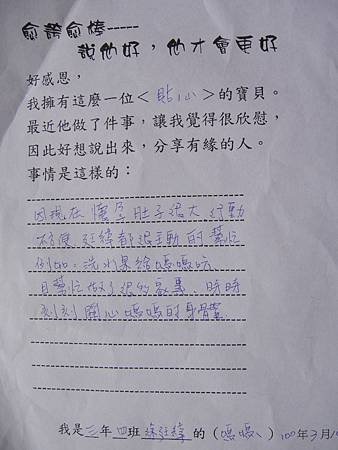 愈誇愈棒-----
說他好，他才會更好
好感恩，
我擁有這麼一位＜貼心＞的寶貝。
最近他做了件事，讓我覺得很欣慰，
因此好想說出來，分享有緣的人。
事情是這樣的：
因現在懷孕肚子很大行動
不方便 都很主動的幫忙
例如：洗水果給媽媽吃
且幫忙做了很多家事，時時
刻刻關心媽媽的身體
我是三年四班 的（媽媽）100年3月1